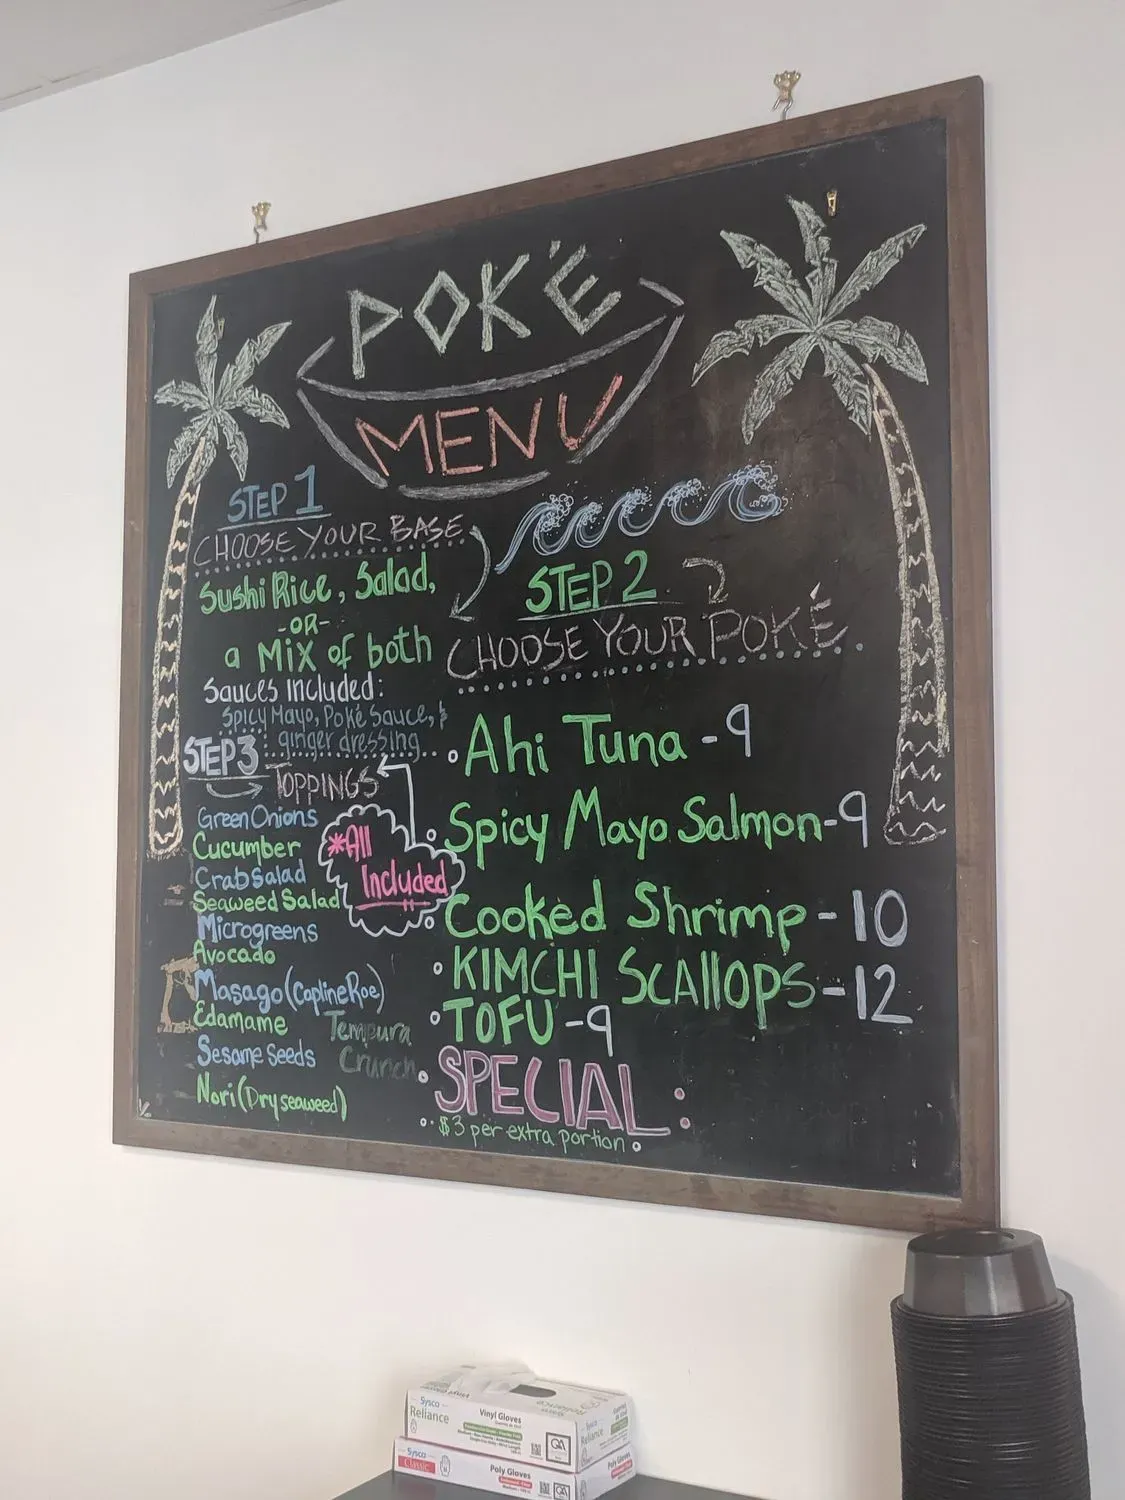 POKÈ
MENU
STEP 1
CHOOSE YOUR BASE
Sushi Rice, Salad,
-OR-
a Mix of both
Sauces Included:
Spicy Mayo, Poké Sauce, &
ginger dressing
STEP 2
CHOOSE YOUR POKÉ
Ahi Tuna - 9
Spicy Mayo Salmon - 9
Cooked Shrimp - 10
KIMCHI SCAllOPS - 12
TOFU - 9
SPECIAL:
$3 per extra portion
STEP 3
TOPPINGS
*All
Included
Green Onions
Cucumber
Crab Salad
Seaweed Salad
Microgreens
Avocado
Masago (Capline Roe)
Edamame
Sesame Seeds
Nori (Dry seaweed)
Tempura
Crunch
Sysco
Reliance
Vinyl Gloves
Sysco
Reliance
Sysco
Classic
Poly Gloves